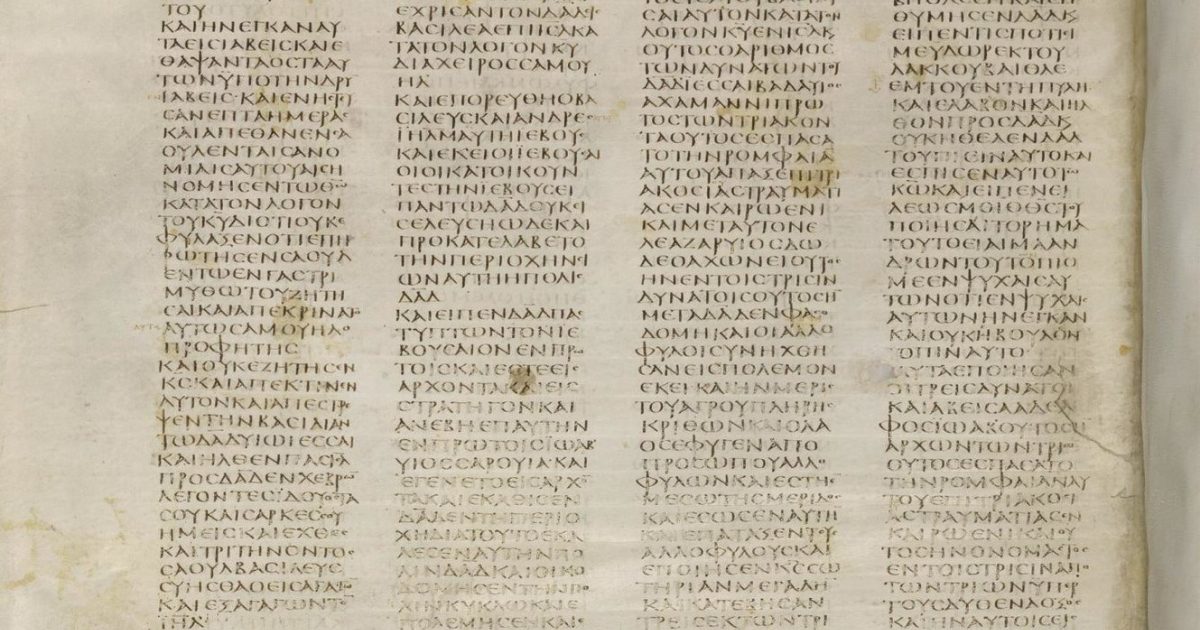 ΤΟΥ
ΚΑΙΗΝΕΓΚΑΝΑΥ
ΤΑΕΙCΙΑΒΕΙCΚΑΙΕ
ΘΑΨΑΝΤΑΟCΤΑΑΥ
ΤΩΝΥΠΟΤΗΝΔΡΥ
ΙΑΒΕΙC·ΚΑΙΕΝΗCΤΙ
CΑΝΕΠΤΑΗΜΕΡΑC
ΚΑΙΑΠΕΘΑΝΕΝCΑ
ΟΥΛΕΝΤΑΙCΑΝΟ
ΜΙΑΙCΑΥΤΟΥΑΙCΗ
ΝΟΜΗCΕΝΤΩΘΩ
ΚΑΤΑΤΟΝΛΟΓΟΝ
ΤΟΥΚΥΔΙΟΤΙΟΥΚΕ
ΦΥΛΑΞΕΝΟΤΙΕΠΗ
ΡΩΤΗCΕΝCΑΟΥΛ
ΕΝΤΩΕΝΓΑCΤΡΙ
ΜΥΘΩΤΟΥΖΗΤΗ
CΑΙΚΑΙΑΠΕΚΡΙΝΑΤ
ΑΥΤΩCΑΜΟΥΗΛΟ
ΠΡΟΦΗΤΗC
ΚΑΙΟΥΚΕΖΗΤΗCΕΝ
ΚCΚΑΙΑΠΕΚΤΙΝΕΝ
ΑΥΤΟΝΚΑΙΑΠΕCΤΡΕ
ΨΕΝΤΗΝΒΑCΙΛΙΑΝ
ΤΩΔΑΔΥΙΩΙΕCCΑΙ
ΚΑΙΗΛΘΕΝΠΑCΙΗΛ
ΠΡΟCΔΑΔΕΝΧΕΒΡΩ
ΛΕΓΟΝΤΕCΙΔΟΥΟCΤΑ
CΟΥΚΑΙCΑΡΚΕCCΟΥ
ΗΜΕΙCΚΑΙΕΧΘΕC
ΚΑΙΤΡΙΤΗΝΟΝΤΟC
CΑΟΥΛΒΑCΙΛΕΥC
CΥΗCΘΑΟΕΙCΑΓΑΓΩ
ΚΑΙΕΞΑΓΑΓΩΝΤΟ
ΙΗΛ
ΕΧΡΙCΑΝΤΟΝΔΑΔΕΙC
ΒΑCΙΛΕΑΕΠΙΙCΑΚΑ
ΤΑΤΟΝΛΟΓΟΝΚΥ
ΔΙΑΧΕΙΡΟCCΑΜΟΥ
ΗΛ
ΚΑΙΕΠΟΡΕΥΘΗΟΒΑ
CΙΛΕΥCΚΑΙΑΝΔΡΕC
ΙΗΛΜΑΥΤΗΙΕΒΟΥC
ΚΑΙΕΚΕΙΟΙΙΕΒΟΥCΑΙ
ΟΙΟΙΚΑΤΟΙΚΟΥΝ
ΤΕCΤΗΝΙΕΒΟΥCΕΙ
ΠΑΝΤΩΔΑΔΟΥΚΕΙ
CΕΛΕΥCΗΩΔΕΚΑΙ
ΠΡΟΚΑΤΕΛΑΒΕΤΟ
ΤΗΝΠΕΡΙΟΧΗΝCΙ
ΩΝΑΥΤΗΗΠΟΛΙC
ΔΑΔ
ΚΑΙΕΙΠΕΝΔΑΔΠΑC
ΤΥΠΤΩΝΤΟΝΙΕ
ΒΟΥCΑΙΟΝΕΝΠΡΩ
ΤΟΙCΚΑΙΕCΤΕΕΙC
ΑΡΧΟΝΤΑΚΑΙΕΙC
CΤΡΑΤΗΓΟΝΚΑΙ
ΑΝΕΒΗΕΠΑΥΤΗΝ
ΕΝΠΡΩΤΟΙCΙΩΑΒ
ΥΙΟCCΑΡΟΥΙΑ·ΚΑΙ
ΕΓΕΝΕΤΟΕΙCΑΡΧΟ
ΤΑΚΑΙΕΚΑΘΙCΕΝ
ΔΑΔΕΝΤΗΠΕΡΙΟ
ΧΗΔΙΑΤΟΥΤΟΕΚΑ
ΛΕCΕΝΑΥΤΗΝΠΟ
ΛΙΝΔΑΔΚΑΙΟΙΚΟ
ΔΟΜΗCΕΝΤΗΝΠΟ
ΚΥΚΛΩΚΑΙΕ
ΠΟΛΕΜΗCΕΝΚΑΙ
CΑΙΑΥΤΟΝΚΑΤΑΤΟΝ
ΛΟΓΟΝΚΥΕΝΙCΑΚ
ΟΥΤΟCΟΑΡΙΘΜΟC
ΤΩΝΔΥΝΑΤΩΝΤΟΥ
ΔΑΔΙΕCCΑΙΒΑΔΑ
ΑΧΑΜΑΝΝΙΠΡΩ
ΤΟCΤΩΝΤΡΙΑΚΟΝ
ΤΑΟΥΤΟCΕCΠΑCΑ
ΤΟΤΗΝΡΟΜΦΑΙΑ
ΑΥΤΟΥΑΠΑΞΕΠΙΤΡΙ
ΑΚΟCΙΑCΤΡΑΥΜΑΤ
ΑCΕΝΚΑΙΡΩΕΝΙ
ΚΑΙΜΕΤΑΥΤΟΝΕ
ΛΕΑΖΑΡΥΙΟCΔΩ
ΛΕΟΑΧΩΝΕΙΟΥΤΟC
ΗΝΕΝΤΟΙCΤΡΙCΙΝ
ΔΥΝΑΤΟΙCΟΥΤΟCΗ
ΜΕΓΑΔΑΔΕΝΦΑCΟ
ΔΟΜΗΚΑΙΟΙΑΛΛΟ
ΦΥΛΟΙCΥΝΗΧΘΗ
CΑΝΕΙCΠΟΛΕΜΟΝ
ΕΚΕΙΚΑΙΗΝΜΕΡΙC
ΤΟΥΑΓΡΟΥΠΛΗΡΗC
ΚΡΙΘΩΝΚΑΙΟΛΑ
ΟCΕΦΥΓΕΝΑΠΟ
ΠΡΟCΩΠΟΥΑΛΛΟ
ΦΥΛΩΝΚΑΙΕCΤΗ
ΜΕCΩΤΗCΜΕΡΙΔΟC
ΚΑΙΕCΩCΕΝΑΥΤΗ
ΚΑΙΕΠΑΤΑΞΕΝΤΟΥC
ΑΛΛΟΦΥΛΟΥCΚΑΙ
ΕΠΟΙΗCΕΝΚCCΩ
ΤΗΡΙΑΝΜΕΓΑΛΗ
ΚΑΙΚΑΤΕΒΗCΑΝ
ΤΡΕΙCΕΚΤΩΝΤΡΙ
ΘΥΜΗCΕΝΔΑΔΚΑΙ
ΕΙΠΕΝΤΙCΠΟΤΙΕΙ
ΜΕΥΔΩΡΕΚΤΟΥ
ΛΑΚΚΟΥΒΑΙΘΛΕ
ΕΜΤΟΥΕΝΤΗΠΥΛΗ
ΚΑΙΕΛΑΒΟΝΚΑΙΗΛ
ΘΟΝΠΡΟCΔΑΔΚΑΙ
ΟΥΚΗΘΕΛΕΝΔΑΔ
ΤΟΥΠΙΕΙΝΑΥΤΟΚΑΙ
ΕCΠΙCΕΝΑΥΤΟΤΩ
ΚΩΚΑΙΕΙΠΕΝΕΙ
ΛΕΩCΜΟΙΟΘCΤΟΥ
ΠΟΙΗCΑΙΤΟΡΗΜΑ
ΤΟΥΤΟΕΙΑΙΜΑΑΝ
ΔΡΩΝΤΟΥΤΩΠΙΟ
ΜΕΕΝΨΥΧΑΙCΑΥ
ΤΩΝΟΤΙΕΝΨΥΧΑΙC
ΑΥΤΩΝΗΝΕΓΚΑΝ
ΚΑΙΟΥΚΗΒΟΥΛΟΝ
ΤΟΠΙΝΑΥΤΟ
ΤΑΥΤΑΕΠΟΙΗCΑΝ
ΟΙΤΡΕΙCΔΥΝΑΤΟΙ
ΚΑΙΑΒΕΙCΑΑΔΕΛ
ΦΟCΙΩΑΒΟΥΤΟCΗ
ΑΡΧΩΝΤΩΝΤΡΙΩ
ΟΥΤΟCΕCΠΑCΑΤΟ
ΤΗΝΡΟΜΦΑΙΑΝΑΥ
ΤΟΥΕΠΙΤΡΙΑΚΟCΙ
ΑCΤΡΑΥΜΑΤΙΑCΕΝ
ΚΑΙΡΩΕΝΙΚΑΙΟΥ
ΤΟCΗΝΟΝΟΜΑCΤΟC
ΕΝΤΟΙCΤΡΙCΙΝΑΠΟ
ΤΩΝΤΡΙΩΝΥΠΕΡ
ΤΟΥCΔΥΟΕΝΔΟΞΟC
ΚΑΙΗΝΑΥΤΟΙCΕΙC